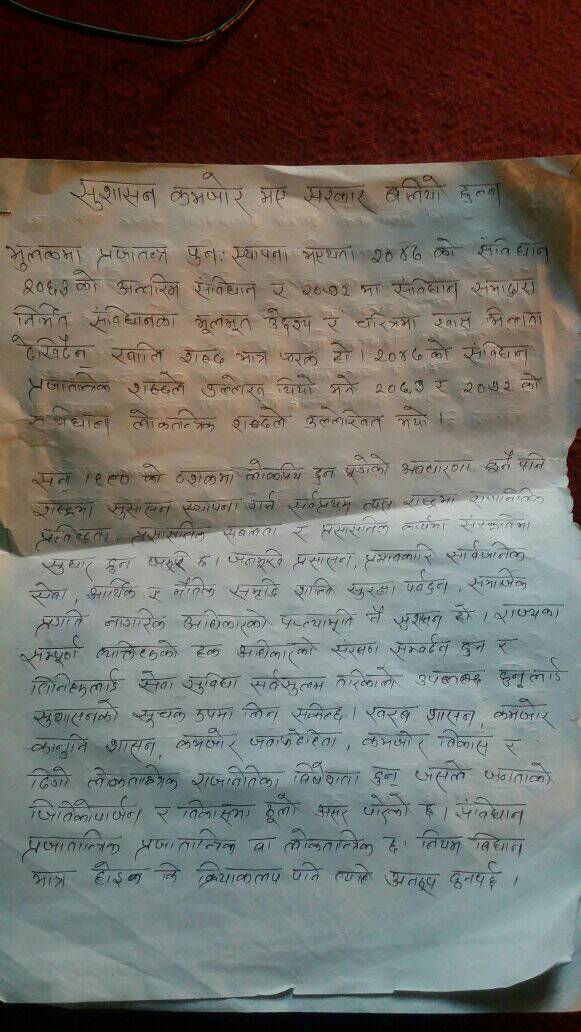 सुशासन कमजोर भए सरकार बलियो हुन्न
मुलुकमा प्रजातन्त्र पुनः स्थापना भएयता २०४७ को संविधान
२०६३ को अन्तरिम संविधान र २०७२ मा संविधान सभाद्वारा
निर्मित संविधानका मूलभूत उद्देश्य र चरित्रमा खास भिन्नता
देखिदैन खालि शब्द मात्र फरक हो । २०४७ को संविधान
प्रजातान्त्रिक शब्दले उल्लेख थियो भने २०६३ र २०७२ को
संविधान लोकतान्त्रिक शब्दले उल्लेखित भयो ।
सन् को दशकमा लोकप्रिय हुन पुगेको अवधारणा हुनै पनि
राष्ट्रमा सुशासन स्थापना गर्न सर्वप्रथम त्यस राष्ट्रमा राजनितिक
प्रतिबद्धता, प्रसासनिक सबलता र प्रसासनिक कार्यमा संस्कृतिमा
सुधार हुन जरूरि छ । जनमुखि प्रसासन, प्रभावकारि सार्वजनिक
सेवा, आर्थिक र भौतिक समृद्धि शान्ति सुरक्षा पर्वद्वन, समाजिक
प्रगति नागरिक अधिकारको प्रत्याभूति नै सुशासन हो । राज्यका
सम्पूर्ण व्यक्तिहरूको हक अधिकारको संरक्षण सम्वर्द्वन हुन र
तिनिहरूलाई सेवा सुविधा सर्वसुलभ तरिकाले उपलब्ध हुनुलाई
सुशासनको सूचक रुपमा लिन सकिन्छ । खराब शासन, कमजोर
कानुनि शासन, कमजोर जवाफदेहिता, कमजोर विकास र
दिगो लोकतान्त्रिक राजनितिका विशेषता हुन जसले जनताको
जिविकोपार्जन र विकासमा ठूलो असर पारेको छ । संविधान
प्रजातान्त्रिक प्रजातान्त्रिक वा लोकतान्त्रिक छ नियम विधान
मात्र होइन कि क्रियाकलप पनि त्यसै अनुरूप हुनुपर्छ ।